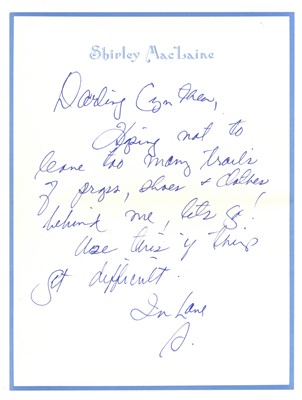 Shirley MacLaine
Darling Cynthea,
Hoping not to
leave too many trails
of props, shoes + clothes
behind me, let's go!
Use this if things
get difficult.
In Love
S.